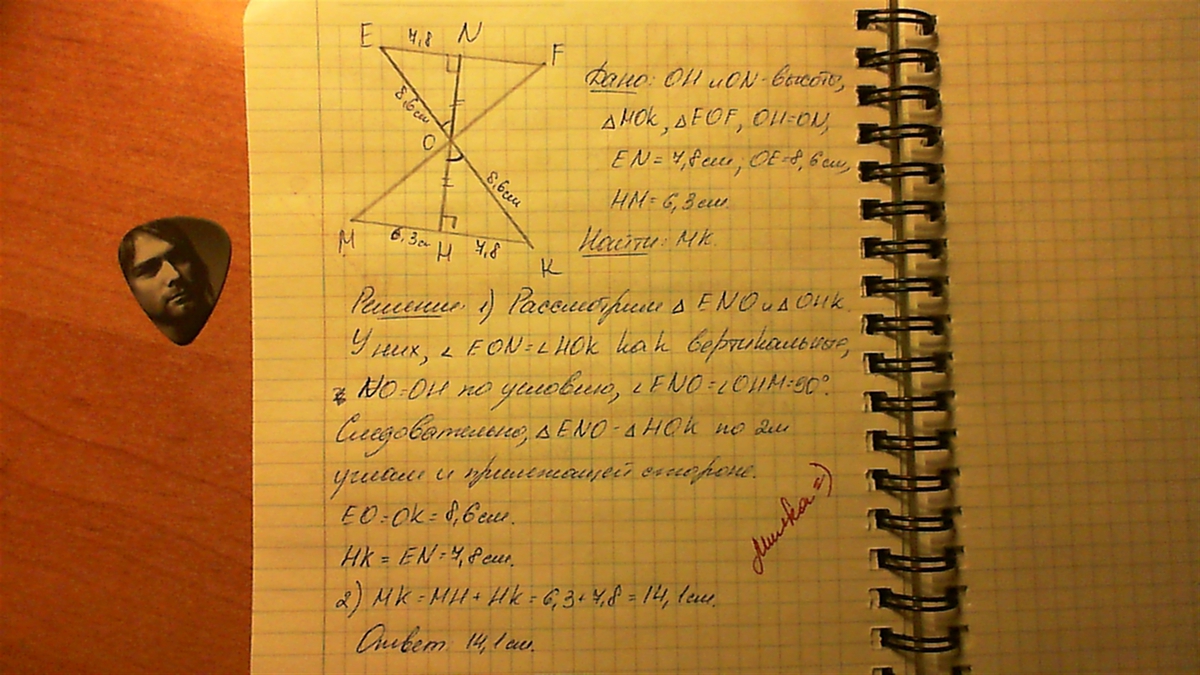 E 7,8 N F
8,6 см
O
8,6 см
M 6,3 см H 7,8 K
Дано: OH и ON - высоты,
△MOK, △EOF, OH=ON,
EN = 7,8 см, OE=8,6 см,
HM = 6,3 см.
Найти: MK.
Решение: 1) Рассмотрим △ENO и △OHK.
У них, ∠EON=∠HOK как вертикальные,
NO=OH по условию, ∠ENO=∠OHM=90°.
Следовательно, △ENO - △HOK по 2м
углам и прилежащей стороне.
EO=OK=8,6 см.
HK = EN=7,8 см.
2) MK = MH + HK = 6,3+7,8 = 14,1 см.
Ответ: 14,1 см.
Милка =)